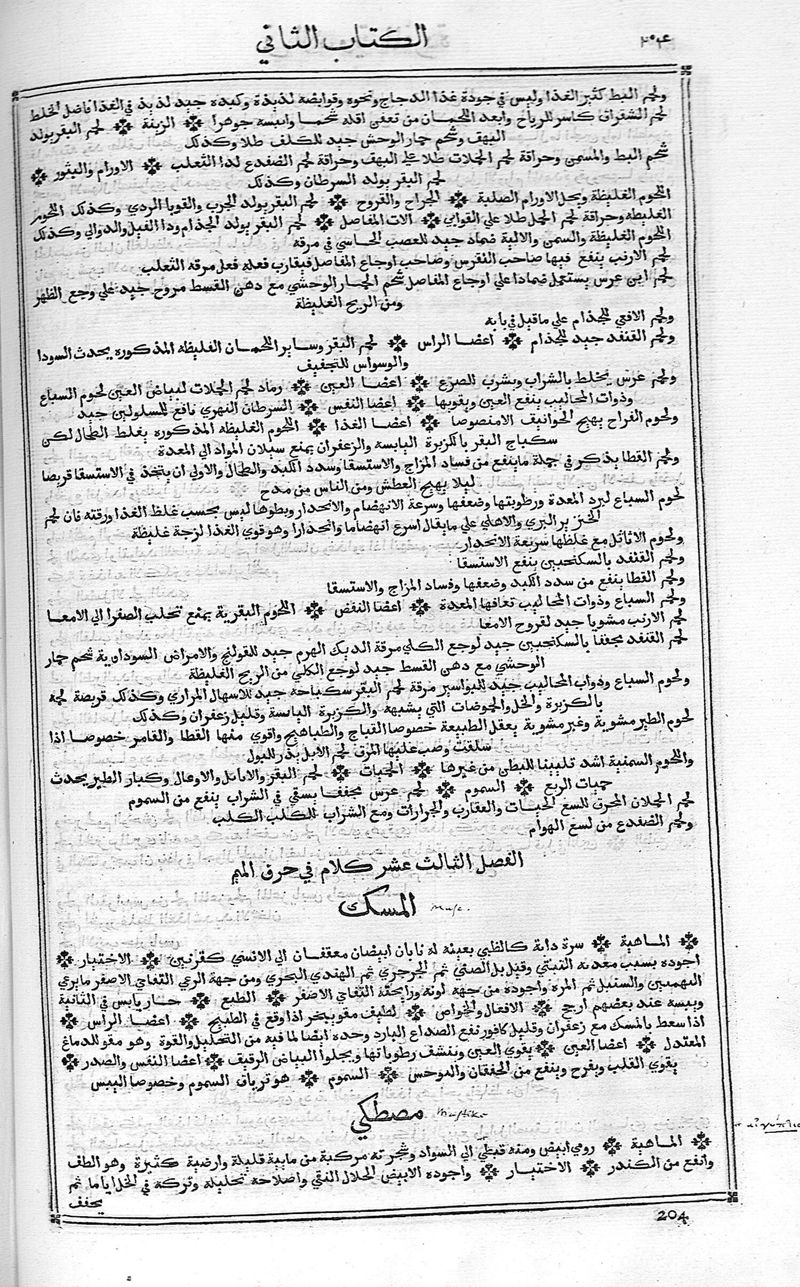 الكتاب الثاني
٢٠٤
ولحم البط كثير الغذا وليس في جودة غذا الدجاج ونحوه وقوانصه لذيذة وكبده جيد لذيذ في الغذا فاضل الخلط
لحم الشقراق كاسر للرياح وابعد اللحمان من تعفن اقله شحما وايبسه جوهرا ❊ الزينة ❊ لحم البقر يولد
البهف وشحم حمار الوحش جيد للكلف طلا وكذلك
شحم البط والمسمن وحراقة لحم الحملات طلا علي البهف وحراقة لحم الضفدع لدا الثعلب ❊ الاورام والبثور ❊
لحم البقر يولد السرطان وكذلك
اللحوم الغليظة ويحل الاورام الصلبة ❊ الجراح والقروح ❊ لحم البقر يولد الجرب والقوبا الردي وكذلك اللحوم
الغليظه وحراقة لحم الحمل طلا علي القوابي ❊ الات المفاصل ❊ لحم البقر يولد الجذام ودا الفيل والدوالي وكذلك
اللحوم الغليظة والسمن والالية ضماد جيد للعصب الجاسي في مرقه
لحم الارنب ينفع فيها صاحب النقرس وصاحب اوجاع المفاصل فيقارب فعله فعل مرقه الثعلب
لحم ابن عرس يستعمل ضمادا علي اوجاع المفاصل شحم الحمار الوحشي مع دهن القسط مروح جيد علي وجع الظهر
ومن الريح الغليظة
ولحم الافعي للجذام علي ما قيل في بابه
ولحم القنفد جيد للجذام ❊ اعضا الراس ❊ لحم البقر وساير اللحمان الغليظه المذكوره يحدث السودا
والوسواس للتجفيف
ولحم عرس يخلط بالشراب ويشرب للصرع ❊ اعضا العين ❊ ورماد لحم الحملات لبياض العين لحوم السباع
وذوات المخاليب ينفع العين ويقويها ❊ اعضا النفس ❊ السرطان النهري نافع للمسلولين جيد
ولحوم الفراخ يهيج الخوانيف الامنصوصا ❊ اعضا الغذا ❊ اللحوم الغليظه المذكوره يغلظ الطحال لكن
سكباج البقر بالكزبرة اليابسة والزعفران يمنع سيلان المواد الي المعدة
ولحم القطا يذكر في جملة ما ينفع من فساد المزاج والاستسقا وسدد الكبد والطحال والاولي ان يتخذ في الاستسقا قريصا
ليلا يهيج العطش ومن الناس من مدح
لحوم السباع لبرد المعدة ورطوبتها وضعفها وسرعة الانهضام والانحدار وبطوها ليس بحسب غلظ الغذا ورقته فان لحم
الخنزير البري والاهلي علي ما يقال اسرع انهضاما وانحدارا وهو قوي الغذا لزجة غليظة
ولحوم الاثاثل مع غلظها سريعة الانحدار
ولحم القنفد بالسكنجبين ينفع الاستسقا
ولحم القطا ينفع من سدد الكبد وضعفها وفساد المزاج والاستسقا
ولحم السباع وذوات المخاليب تعافها المعدة ❊ اعضا النفض ❊ اللحوم البقرية يمنع تحلب الصفرا الي الامعا
لحم الارنب مشويا جيد لقروح الامعا
لحم القنفد مجففا بالسكنجبين جيد لوجع الكلي مرقة الديك الهرم جيد للقولنج والامراض السوداوية شحم حمار
الوحشي مع دهن القسط جيد لوجع الكلي من الريح الغليظة
ولحوم السباع وذواب المخاليب جيد للبواسير مرقة لحم البقر سكباجه جيد للاسهال المراري وكذلك قريصة لحمه
بالكزبرة والخل والحموضات التي يشبهه والكزبرة اليابسة وقليل زعفران وكذلك
لحوم الطير مشوية وغير مشوية يعقل الطبيعة خصوصا القباج والطياهيج واقوي منها القطا والقامر خصوصا اذا
سلقت وصب عليها المرق لحم الايل يدر للبول
واللحوم السمنية اشد تليينا للبطن من غيرها ❊ الحميات ❊ لحم البقر والايائل والاوعال وكبار الطير يحدث
حميات الربع ❊ السموم ❊ لحم عرس مجففا يسقي في الشراب ينفع من السموم
لحم الحملان المحرق للسع الحيات والعقارب والجرارات ومع الشراب للكلب الكلب
ولحم الضفدع من لسع الهوام
الفصل الثالث عشر كلام في حرف الميم
المسك Musc.
❊ الماهية ❊ سرة دابة كالظبي بعينه له نابان ابيضان معقفان الي الانسي كقرنين ❊ الاختيار ❊
اجوده بسبب معدنه التبتي وقيل بل الصيني ثم الجرجري ثم الهندي البحري ومن جهة الرعي القفاي الاصفر ما يرعي
البهمنين والسنبل ثم المره واجوده من جهه لونه ورايحته القفاي الاصفر ❊ الطبع ❊ حار يابس في الثانية
ويبسه عند بعضهم ارجح ❊ الافعال والخواص ❊ لطيف مقو يبخر اذا وقع في الطبيخ ❊ اعضا الراس ❊
اذا سعط بالمسك مع زعفران وقليل كافور نفع الصداع البارد وحده ايضا لما فيه من التحليل والقوة وهو مقو للدماغ
المعتدل ❊ اعضا العين ❊ يقوي العين وينشف رطوباتها ويجلوا البياض الرقيف ❊ اعضا النفس والصدر ❊
يقوي القلب ويفرح وينفع من الخفقان والموحس ❊ السموم ❊ هو ترياق السموم وخصوصا البيس
مصطكي Mastiki
❊ الماهية ❊ رومي ابيض ومنه قبطي الي السواد وشجرته مركبة من مايية قليلة وارضية كثيرة وهو الطف
وانفع من الكندر ❊ الاختيار ❊ واجوده الابيض الحلال النقي واصلاحه تحليله وتركه في الخل اياما ثم
يجفف
204